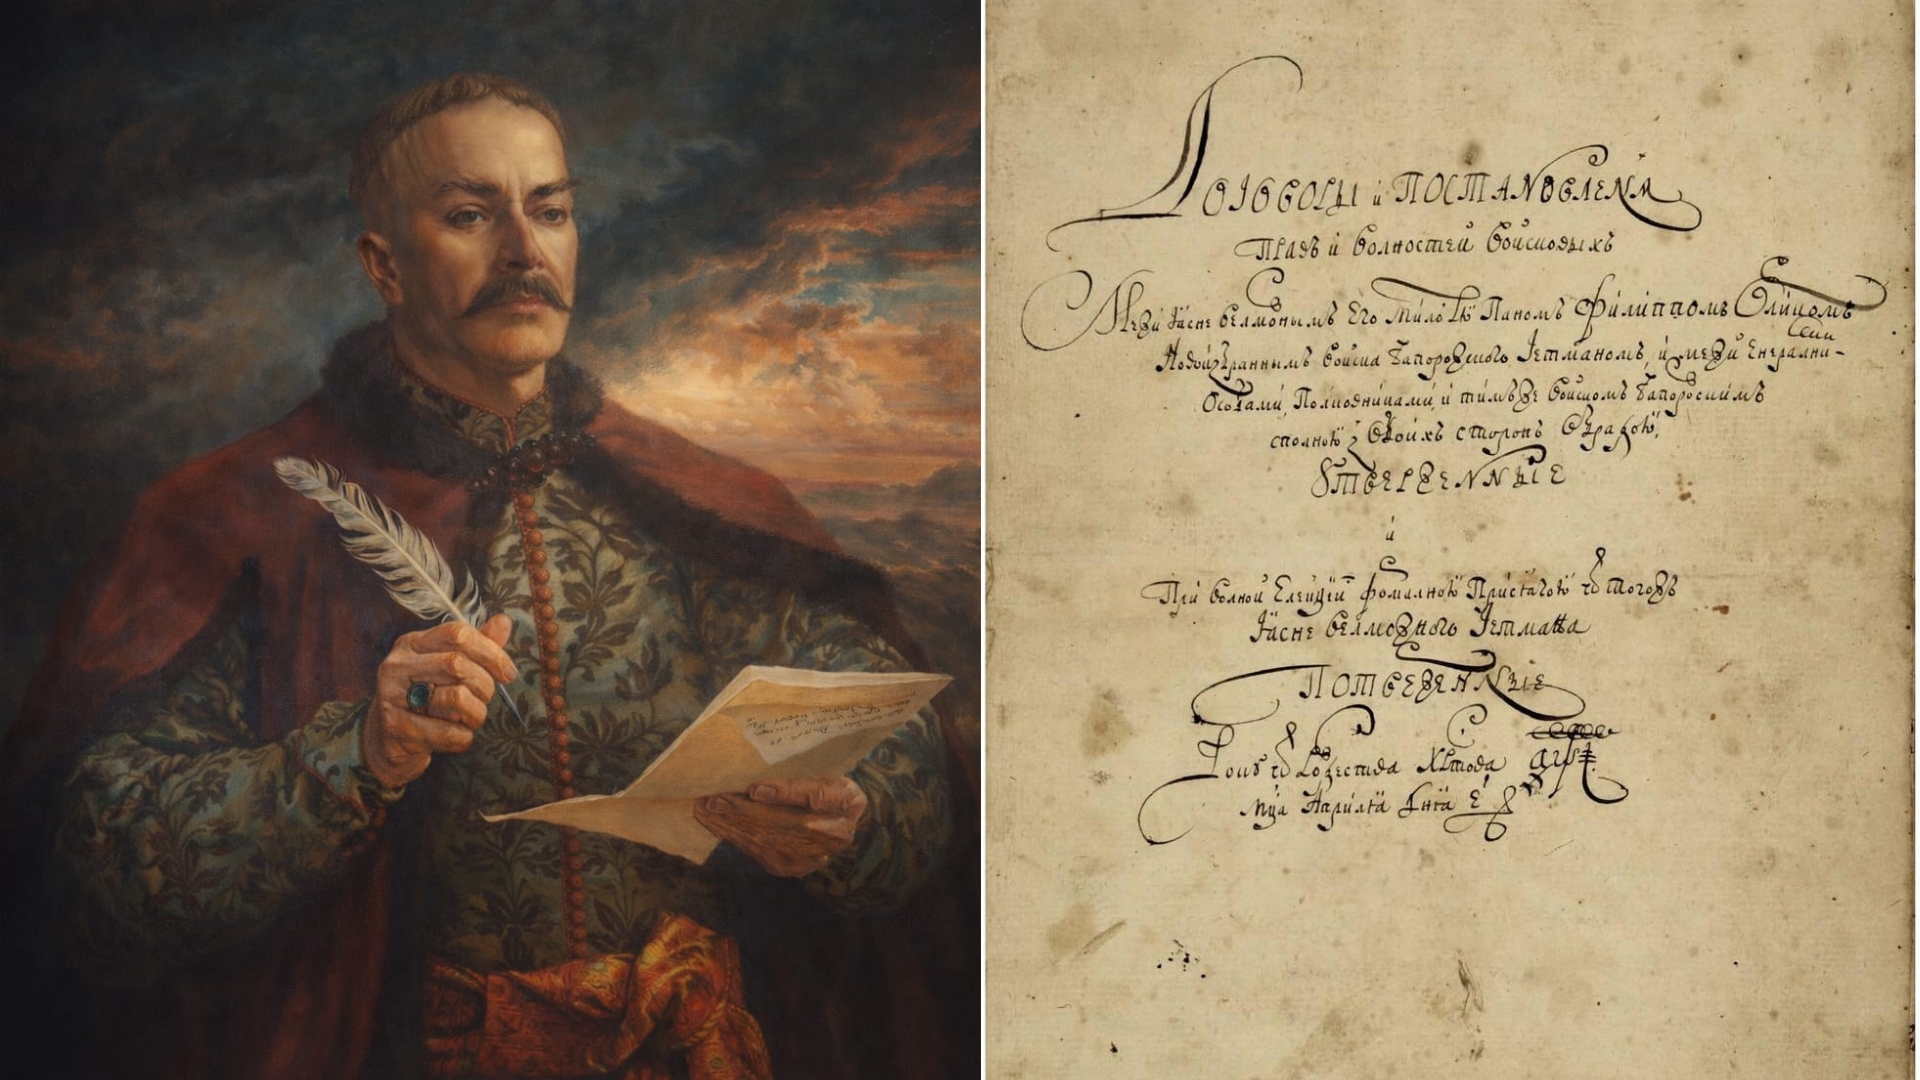 Договоры и Постановленѧ
Правъ и волностей войсковыхъ
Межи Ясне велможнымъ Его милостю Паномъ Филиппомъ Орликомъ
Новоизбраннымъ войска Запорожского Гетманомъ, и межи Енерални-
ми
Особами, Полковниками, и тимъже войскомъ Запорозскимъ
сполною з обоихъ сторонъ обрадою,
Утверженные
и
При волной Елекціи формалною Присягою ѿ тогожъ
Ясне велможного Гетмана
Потверженные
Року ѿ Рожества Христова аѱі
мца Априля дня е